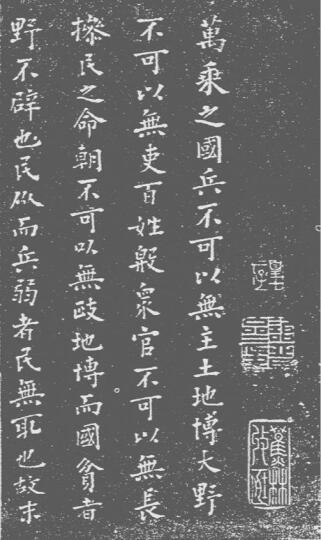 萬乘之國兵不可以無主土地博大野
不可以無吏百姓殷眾官不可以無長
操民之命朝不可以無政地博而國貧者
野不辟也民㐺而兵弱者民無取也故末